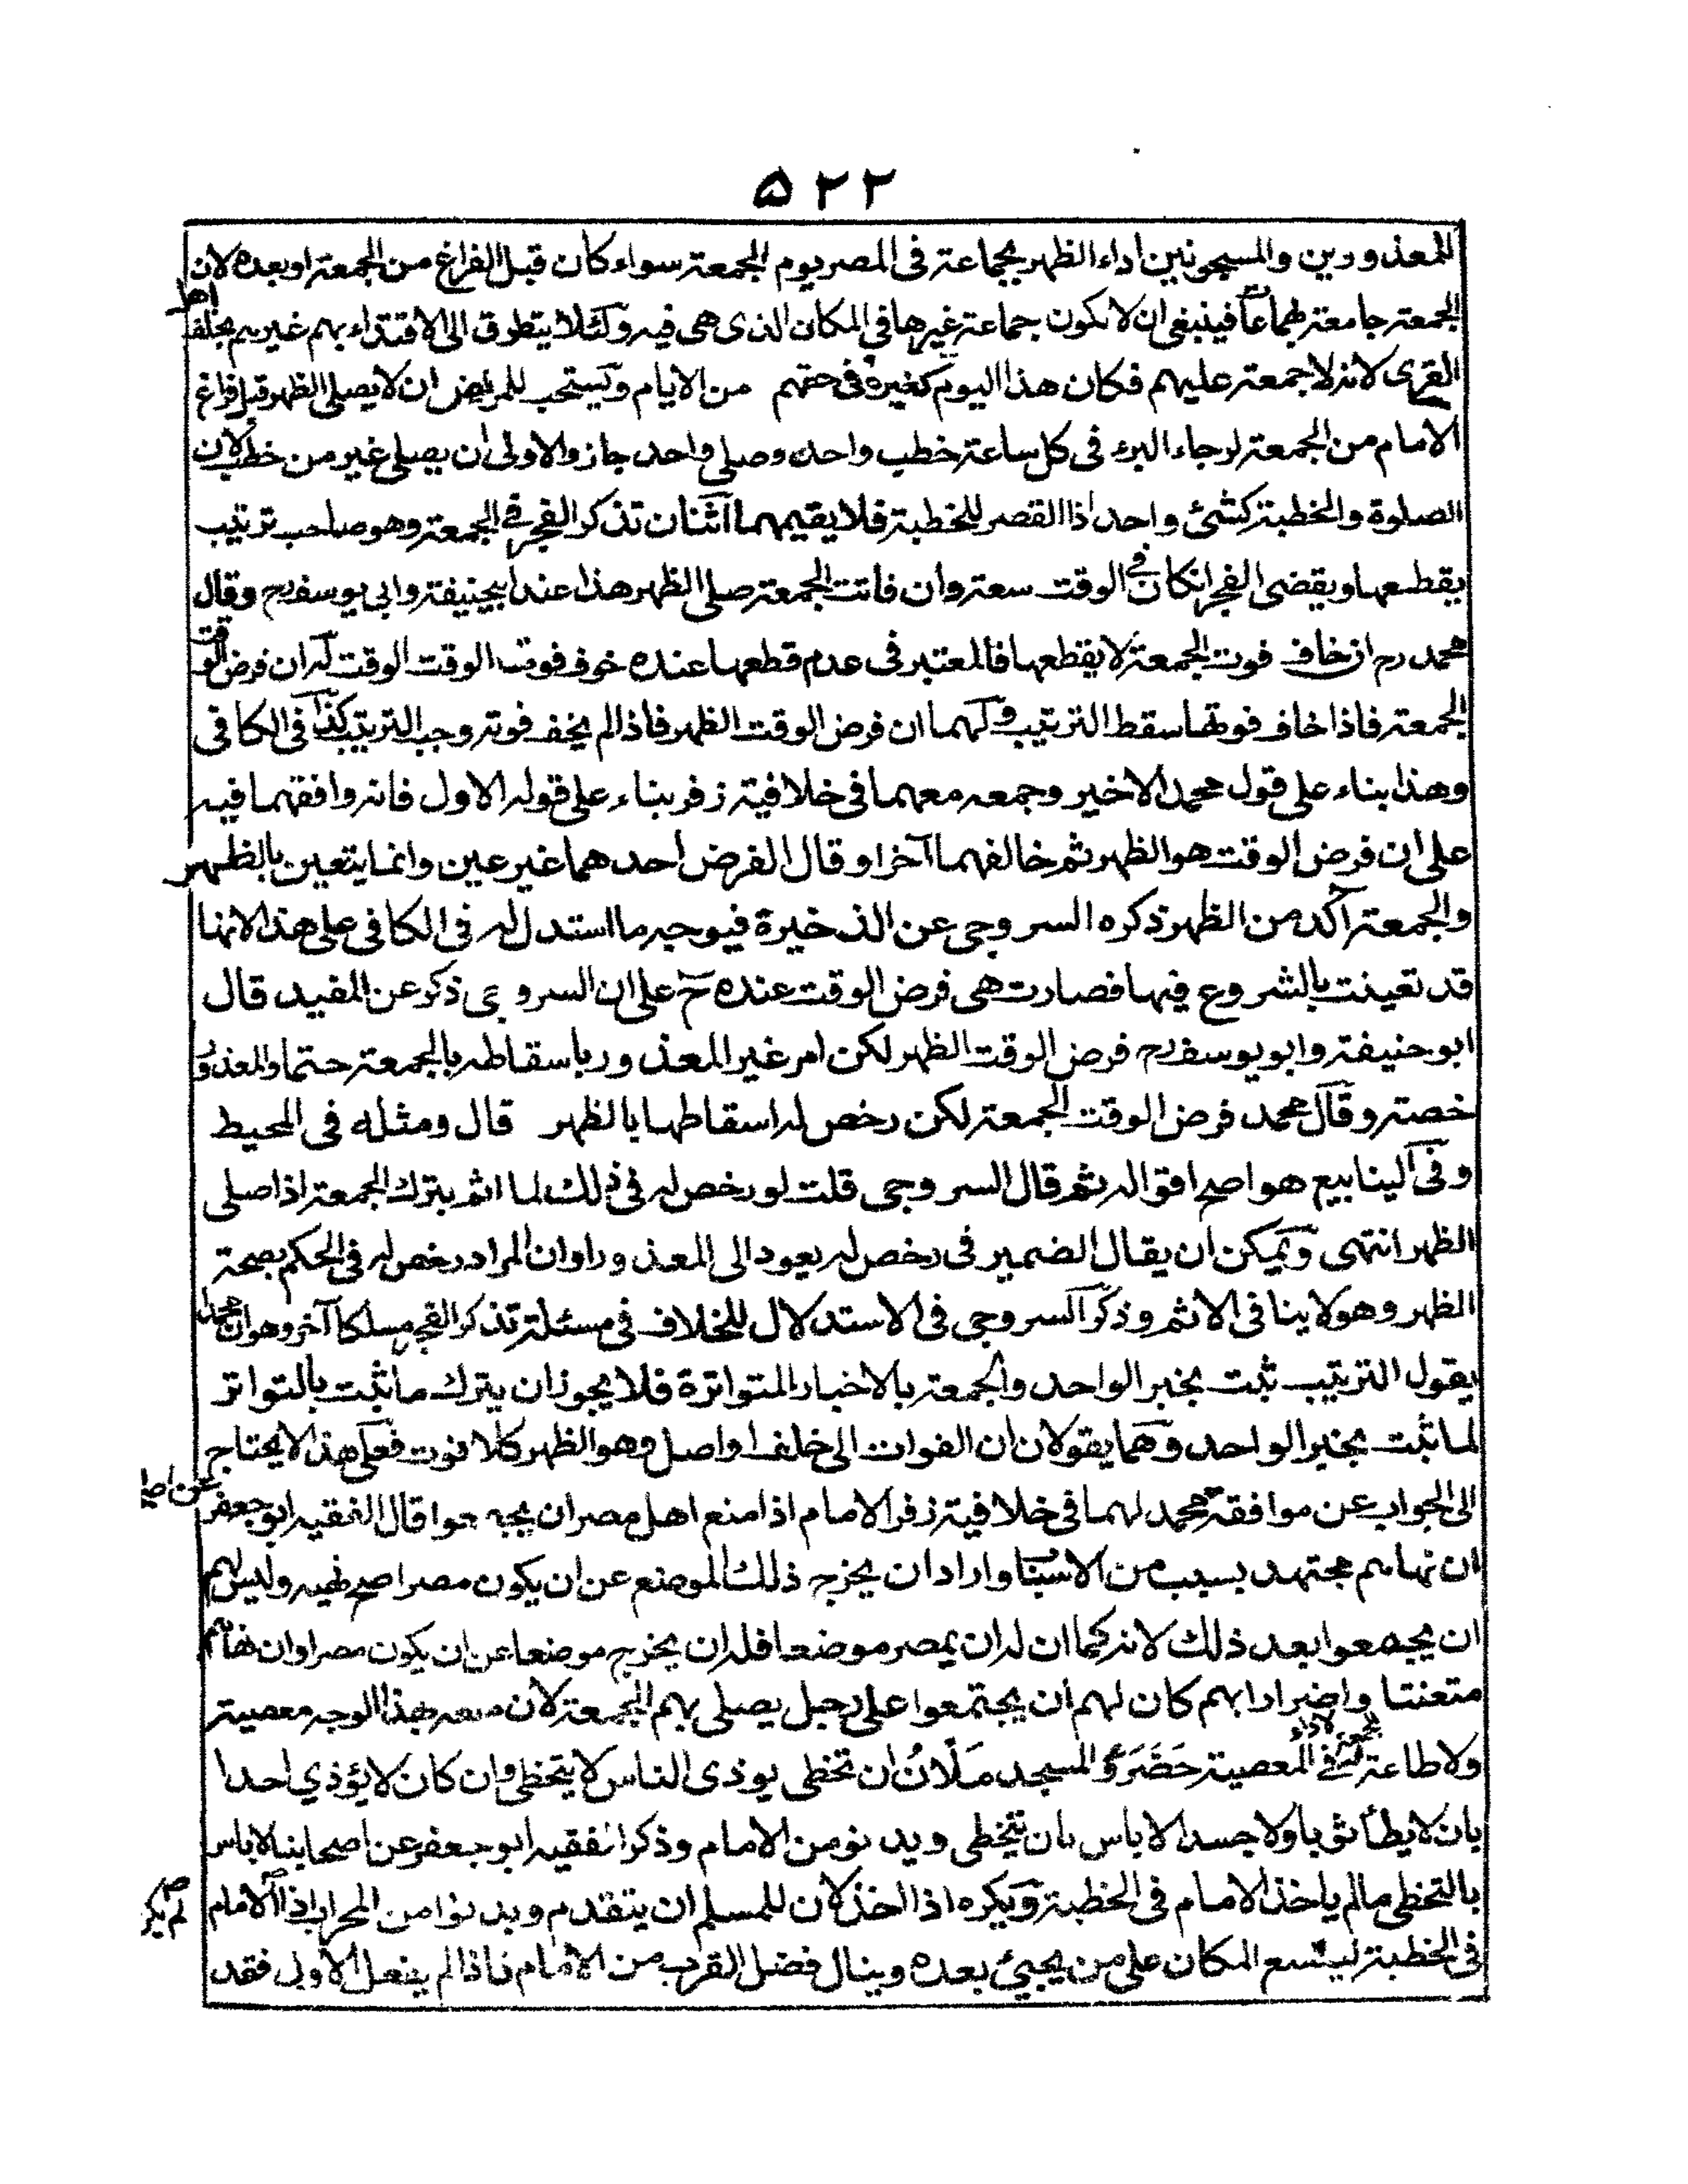 ۵۲۲
للمعذورين والمسجونين اداء الظهر بجماعة فى المصر يوم الجمعة سواء كان قبل الفراغ من الجمعة او بعده لان
الجمعة جامعة للجماعات فينبغى ان لا تكون جماعة غيرها فى المكان الذى هى فيه ولئلا يتطرق الى الاقتداء بهم غيرهم بخلاف اهل
القرى لانه لا جمعة عليهم فكان هذا اليوم كغيره فى حقهم من الايام ويستحب للمريض ان لا يصلى الظهر قبل فراغ
الامام من الجمعة لرجاء البرء فى كل ساعة خطب واحد وصلى واحد جاز والاولى ان لا يصلى غير من خطب لان
الصلوة والخطبة كشئ واحد اذا القصر للخطبة فلا يقيمهما اثنان تذكر الفجر فى الجمعة وهو صاحب ترتيب
يقطعها ويقضى الفجر انكان فى الوقت سعة وان فاتت الجمعة صلى الظهر هذا عند ابيحنيفة وابى يوسف رح وقال
محمد رح ان خاف فوت الجمعة لا يقطعها فالمعتبر فى عدم قطعها عنده خوف فوت الوقت الوقت له ان فرض الوقت
الجمعة فاذا خاف فوتها سقط الترتيب ولهما ان فرض الوقت الظهر فاذا لم يخف فوته وجب الترتيب كذا فى الكافى
وهذا بناء على قول محمد الاخير وجمعه معهما فى خلافية زفر بناء على قوله الاول فانه وافقهما فيه
على ان فرض الوقت هو الظهر ثم خالفهما آخرا وقال الفرض احدهما غير عين وانما يتعين بالظهر
والجمعة آكد من الظهر ذكره السروجى عن الذخيرة فيوجه ما استدل له فى الكافى على هذا لانها
قد تعينت بالشروع فيها فصارت هى فرض الوقت عنده ح على ان السروجى ذكر عن المفيد قال
ابو حنيفة وابو يوسف رح فرض الوقت الظهر لكن امر غير المعذور باسقاطه بالجمعة حتما والمعذور
خصة وقال محمد فرض الوقت الجمعة لكن رخص له اسقاطها بالظهر قال ومثله فى المحيط
وفى الينابيع هو اصح اقواله ثم قال السروجى قلت لو رخص له فى ذلك لما اثم بترك الجمعة اذا صلى
الظهر انتهى ويمكن ان يقال الضمير فى رخص له يعود الى المعذور او ان المراد رخص له فى الحكم بصحة
الظهر وهو لا ينافى الاثم وذكر السروجى فى الاستدلال للخلاف فى مسئلة تذكر الفجر مسلكا آخر وهو ان محمدا
يقول الترتيب ثبت بخبر الواحد والجمعة بالاخبار المتواترة فلا يجوز ان يترك ما ثبت بالتواتر
لما ثبت بخبر الواحد وهما يقولان ان الفوات الى خلف او اصل وهو الظهر كلا فوت فعلى هذا لا يحتاج
الى الجواب عن موافقة محمد لهما فى خلافية زفر الامام اذا منع اهل مصر ان يجمعوا قال الفقيه ابو جعفر عن اصحابنا
ان نهاهم مجتهد بسبب من الاسباب واراد ان يخرج ذلك الموضع عن ان يكون مصرا صح نهيه وليس لهم
ان يجمعوا بعد ذلك لانه كما ان له ان يمصر موضعا فله ان يخرج موضعا عن ان يكون مصرا وان نهاهم
متعنتا واضرارا بهم كان لهم ان يجتمعوا على رجل يصلى بهم الجمعة لان منعه بهذا الوجه معصية
ولا طاعة فى المعصية حَضَرَ والمسجد مَلْآنُ ان تخطى يوذى الناس لا يتخطى وان كان لا يؤذي احدا
بان لا يطأ ثوبا ولا جسدا لا باس بان يتخطى ويدنو من الامام وذكر الفقيه ابو جعفر عن اصحابنا لا باس
بالتخطى ما لم ياخذ الامام فى الخطبة ويكره اذا اخذ لان للمسلم ان يتقدم ويدنوا من المحراب اذا لم يكن الامام
فى الخطبة ليتسع المكان على من يجيئ بعده وينال فضل القرب من الامام فاذا لم يفعل الاولى فقد